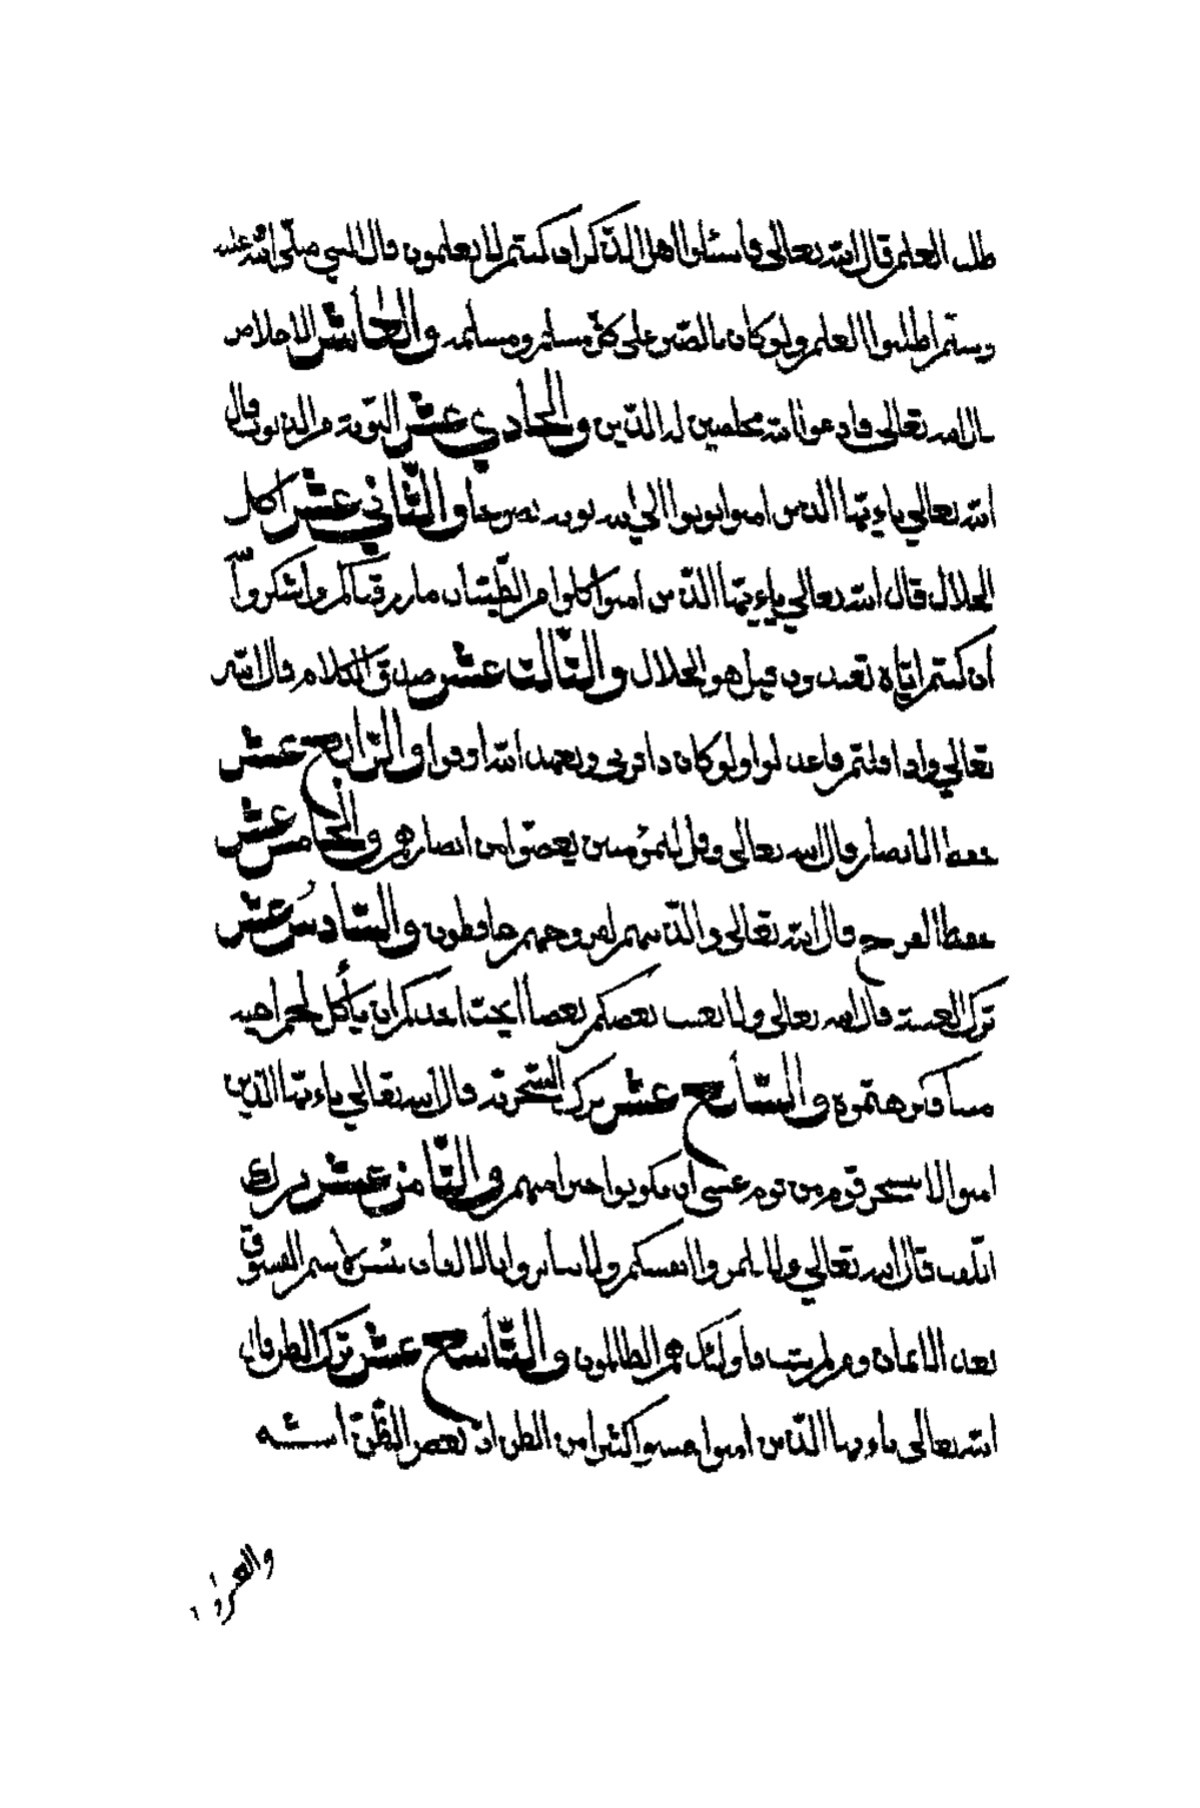 طلب العلم قال الله تعالى فاسئلوا اهل الذكر ان كنتم لا يعلمون قال النبي صلى الله عليه
وسلم اطلبوا العلم ولو كان بالصين على كل مسلم ومسلمة والعاشر الاخلاص
قال الله تعالى فادعوا الله مخلصين له الدين والحادي عشر التوبة من الذنوب قال
الله تعالى ياءيها الذين امنوا توبوا الى الله توبة نصوحا والثاني عشر اكل
الحلال قال الله تعالى ياءيها الذين امنوا كلوا من الطيبات ما رزقناكم واشكروا لله
ان كنتم اياه تعبدون قيل هو الحلال والثالث عشر صدق الكلام قال الله
تعالى واذا قلتم فاعدلوا ولو كان ذا قربى وبعهد الله اوفوا والرابع عشر
حفظ الابصار قال الله تعالى وقل للمؤمنين يغضوا من ابصارهم والخامس عشر
حفظ الفرج قال الله تعالى والذينهم لفروجهم حافظون والسادس عشر
ترك الغيبة قال الله تعالى ولا يغتب بعضكم بعضا ايحب احدكم ان يأكل لحم اخيه
ميتا فكرهتموه والسابع عشر ترك السخرية قال الله تعالى ياءيها الذين
امنوا لا يسخر قوم من قوم عسى ان يكونوا خيرا منهم والثامن عشر ترك
اللقب قال الله تعالى ولا تلمزوا انفسكم ولا تنابزوا بالالقاب بئس الاسم الفسوق
بعد الايمان ومن لم يتب فاولئك هم الظالمون والتاسع عشر ترك الظن قال
الله تعالى ياءيها الذين امنوا اجتنبوا كثيرا من الظن ان بعض الظن اثم
والعشرون